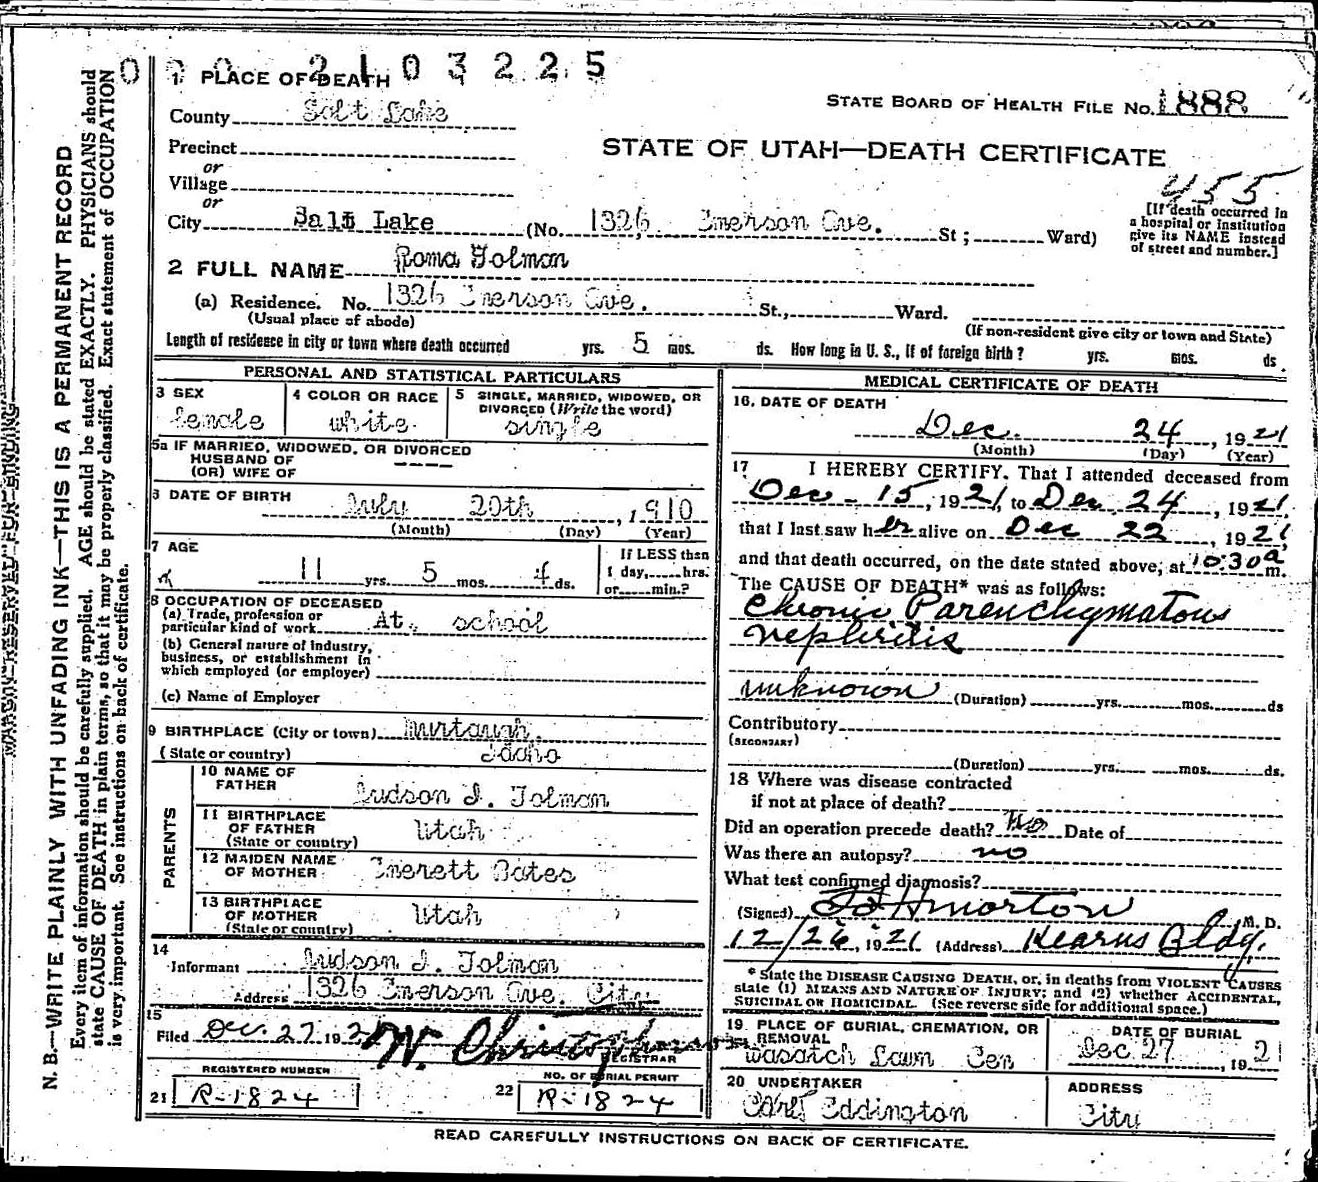 0 0 0 2 1 0 3 2 2 5
1 PLACE OF DEATH
STATE BOARD OF HEALTH FILE No. 1888
County Salt Lake
Precinct
STATE OF UTAH—DEATH CERTIFICATE
or
Village
455
or
City Salt Lake (No. 1326 Emerson Ave. St ; Ward)
[If death occurred in
a hospital or institution
give its NAME instead
of street and number.]
2 FULL NAME Roma Tolman
(a) Residence. No. 1326 Emerson Ave. St., Ward.
(Usual place of abode) (If non-resident give city or town and State)
Length of residence in city or town where death occurred yrs. 5 mos. ds. How long in U. S., if of foreign birth ? yrs. mos. ds.
PERSONAL AND STATISTICAL PARTICULARS
3 SEX
female
4 COLOR OR RACE
white
5 SINGLE, MARRIED, WIDOWED, OR
DIVORCED (Write the word)
single
5a IF MARRIED, WIDOWED, OR DIVORCED
HUSBAND OF
(OR) WIFE OF ----
6 DATE OF BIRTH
July 20th, 1910
(Month) (Day) (Year)
7 AGE
11 yrs. 5 mos. 4 ds.
If LESS than
1 day, hrs.
or min.?
8 OCCUPATION OF DECEASED
(a) Trade, profession or
particular kind of work At school
(b) General nature of industry,
business, or establishment in
which employed (or employer)
(c) Name of Employer
9 BIRTHPLACE (City or town) Murtaugh,
(State or country) Idaho
PARENTS
10 NAME OF
FATHER Judson I. Tolman
11 BIRTHPLACE
OF FATHER Utah
(State or country)
12 MAIDEN NAME
OF MOTHER Emerett Bates
13 BIRTHPLACE
OF MOTHER Utah
(State or country)
14
Informant Judson I. Tolman
Address 1326 Emerson Ave. City
15
Filed Dec. 27 192 W. Christopherson
REGISTRAR
REGISTERED NUMBER
21 R-1824
NO. OF BURIAL PERMIT
22 R-1824
MEDICAL CERTIFICATE OF DEATH
16. DATE OF DEATH
Dec. 24, 1921
(Month) (Day) (Year)
17 I HEREBY CERTIFY. That I attended deceased from
Dec - 15, 1921, to Dec 24, 1921
that I last saw her alive on Dec 22, 1921,
and that death occurred, on the date stated above, at 10:30 a m.
The CAUSE OF DEATH* was as follows:
Chronic Parenchymatous
nephritis
unknown (Duration) yrs. mos. ds
Contributory
(SECONDARY)
(Duration) yrs. mos. ds.
18 Where was disease contracted
if not at place of death?
Did an operation precede death? No Date of
Was there an autopsy? no
What test confirmed diagnosis?
(Signed) M. D.
12/26, 1921 (Address) Kearns Bldg.
* State the DISEASE CAUSING DEATH, or, in deaths from VIOLENT CAUSES
state (1) MEANS AND NATURE OF INJURY; and (2) whether ACCIDENTAL,
SUICIDAL OR HOMICIDAL. (See reverse side for additional space.)
19 PLACE OF BURIAL, CREMATION, OR
REMOVAL
Wasatch Lawn Cem
DATE OF BURIAL
Dec 27, 1921
20 UNDERTAKER
Earl Eddington
ADDRESS
City
READ CAREFULLY INSTRUCTIONS ON BACK OF CERTIFICATE.
MARGIN RESERVED FOR BINDING
N. B.—WRITE PLAINLY WITH UNFADING INK—THIS IS A PERMANENT RECORD
Every item of information should be carefully supplied. AGE should be stated EXACTLY. PHYSICIANS should
state CAUSE OF DEATH in plain terms, so that it may be properly classified. Exact statement of OCCUPATION
is very important. See instructions on back of certificate.